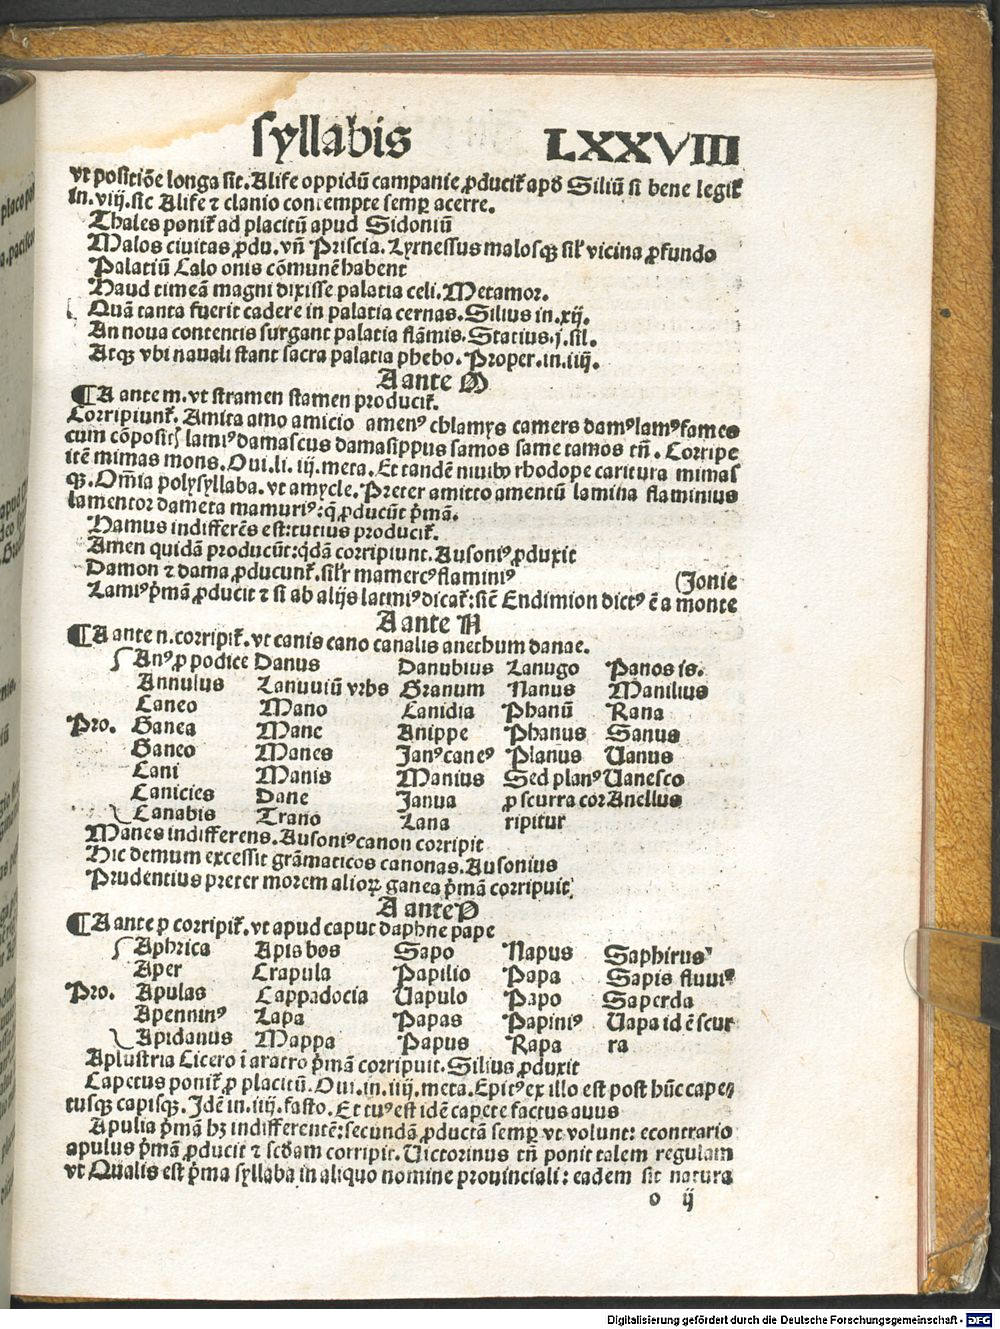 syllabis LXXVIII
vt positiōe longa sit. Alife oppidū campanie ꝓducit᷑ apd̄ Siliū si bene legit᷑
in. viij. sic Alife ⁊ clanio contempte semꝑ acerre.
Thales ponit᷑ ad placitū apud Sidoniū
Malos ciuitas ꝓdu. vn̄ Priscia. Lyrnessus malosqꝫ sil̓ vicina ꝓfundo
Palatiū Calo onis cōmunē habent
Haud timeā magni dixisse palatia celi. Metamor.
Quā tanta fuerit cadere in palatia cernas. Silius in. xij.
An noua contentis surgant palatia flāmis. Statius. j. sil.
Atqꝫ vbi nauali stant sacra palatia phebo. Proper. in. iiij.
A ante M
¶ A ante m. vt stramen stamen producit᷑.
Corripiunt᷑. Amita amo amicio amenꝰ chlamys camers damꝰ lamꝰ fames
cum cōpositꝭ lamiꝰ damascus damasippus samos same tamos tn̄. Corripe
itē mimas mons. Oui. li. iij. meta. Et tandē niuib᷒ rhodope caritura mimas
qꝫ. Om̄ia polysyllaba. vt amycle. Preter amitto amentū lamina flaminius
lamentor dameta mamuriꝰ: q̄ ꝓducūt p̄mā.
Hamus indifferēs est: tutius producit᷑.
Amen quidā producūt: qdā corripiunt. Ausoniꝰ ꝓduxit
Damon ⁊ dama ꝓducunt᷑. silr̄ mamercꝰ flaminiꝰ (Jonie
Lamiꝰ p̄mā ꝓducit ⁊ si ab alijs latmiꝰ dicat᷑: sic̄ Endimion dictꝰ ē a monte
A ante N
¶ A ante n. corripit᷑. vt canis cano canalis anethum danae.
Anꝰ ꝓ podice Danus Danubius Lanugo Panos is.
Annulus Lanuuiū vrbs Granum Nanus Manilius
Caneo Mano Canidia Phanū Rana
Pro. Ganea Mane Anippe Phanus Sanus
Ganeo Manes Janꝰ caneꝰ Planus Uanus
Cani Manis Manius Sed planꝰ Uanesco
Canicies Dane Janua ꝓ scurra cor Anellus
Canabis Trano Lana ripitur
Manes indifferens. Ausoniꝰ canon corripit
Hic demum excessit grāmaticos canonas. Ausonius
Prudentius preter morem alioꝝ ganea p̄mā corripuit
A ante P
¶ A ante p corripit᷑. vt apud caput daphne pape
Aphrica Apis bos Sapo Napus Saphirusꝰ
Aper Crapula Papilio Papa Sapis fluuiꝰ
Pro. Apulas Cappadocia Uapulo Papo Saperda
Apenninꝰ Lapa Papas Papiniꝰ Uapa id ē scur
Apidanus Mappa Papus Rapa ra
Aplustria Cicero ī aratro p̄mā corripuit. Silius ꝓduxit
Capetus ponit᷑ ꝓ placitū. Oui. in. iiij. meta. Epitꝰ ex illo est post hūc cape⸗
tusqꝫ capisqꝫ. Idē in. iiij. fasto. Et tuꝰ est idē capete factus auus
Apulia p̄mā hꝫ indifferentē: secundā ꝓductā semꝑ vt volunt: econtrario
apulus p̄mā ꝓducit ⁊ scd̄am corripit. Uictorinus tn̄ ponit talem regulam
vt Qualis est p̄ma syllaba in aliquo nomine prouinciali: eadem sit natura
o ij
Digitalisierung gefördert durch die Deutsche Forschungsgemeinschaft - DFG